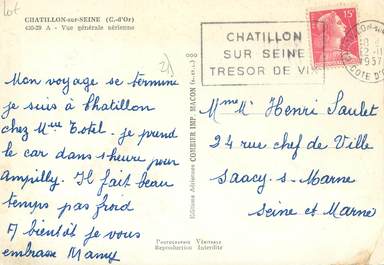 lot
CHATILLON-sur-SEINE (C.-d'Or)
430-29 A - Vue générale aérienne
CHATILLON
SUR SEINE
TRESOR DE VIX
15F
1957
COTE D'O
Mon voyage se termine
je suis à Chatillon
chez Mme Estel. je prend
le car dans 1 heure pour
Ampilly. Il fait beau
temps pas froid
A bientôt je vous
embrasse Mamy
Editions Aériennes COMBIER IMP. MACON
Photographie Véritable
Reproduction Interdite
Mme Mr Henri Saulet
24 rue chef de Ville
Saacy. s. Marne
Seine et Marne